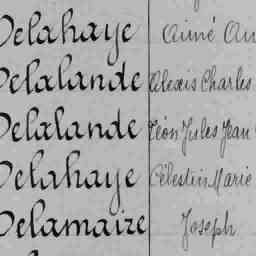 Delahaye Aimé Au
Delalande Alexis Charles
Delalande Léon Jules Jean
Delahaye Célestin Marie
Delamaire Joseph